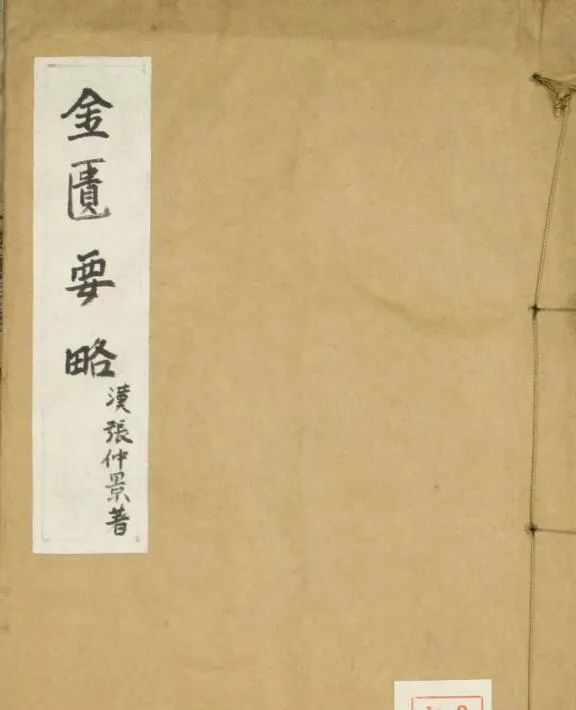 金匱要略
漢張仲景著